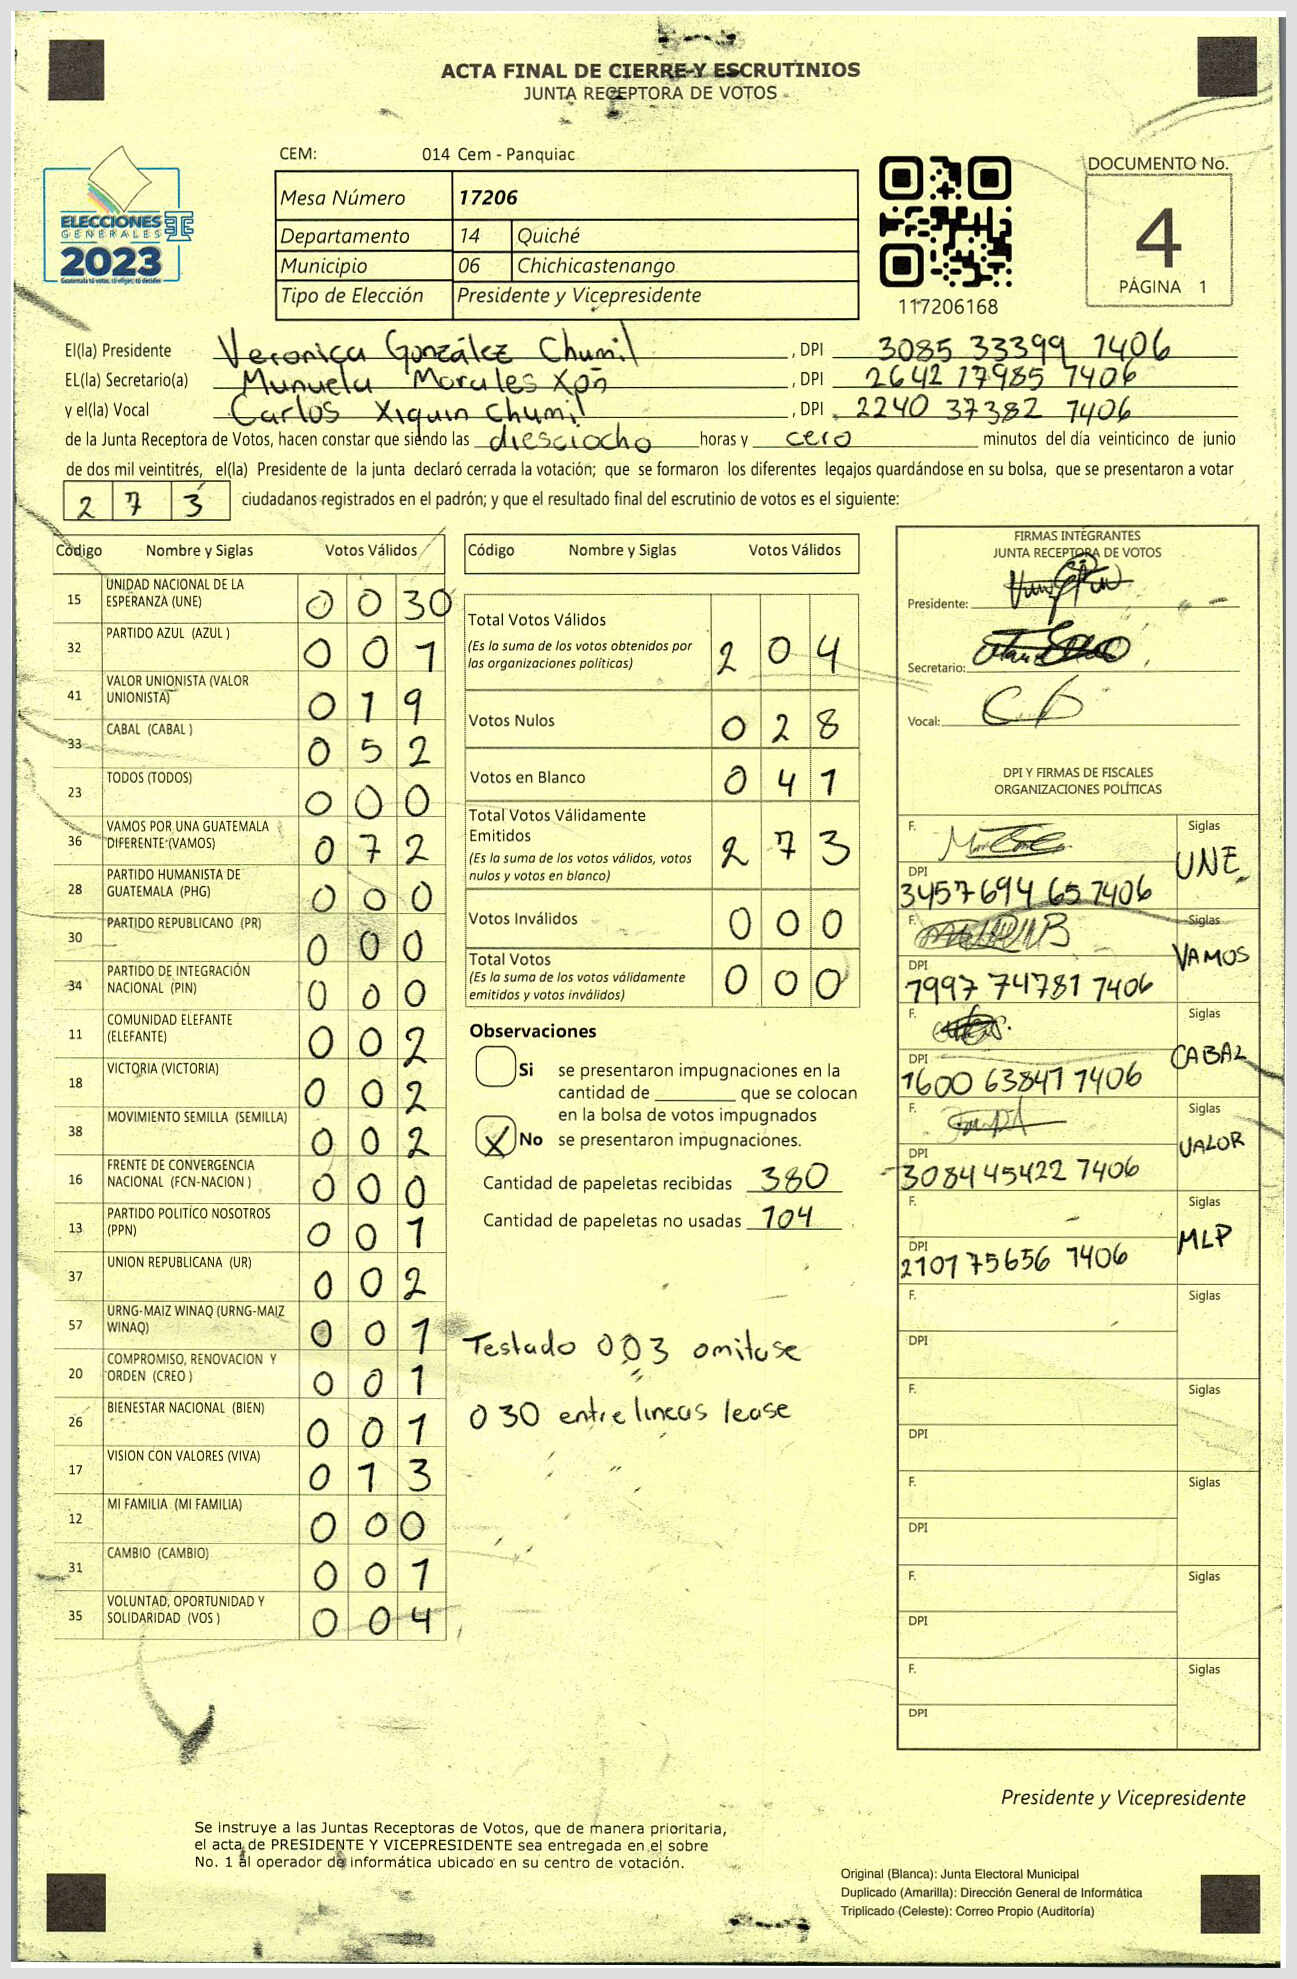 ACTA FINAL DE CIERRE Y ESCRUTINIOS
JUNTA RECEPTORA DE VOTOS
CEM: 014 Cem - Panquiac
Mesa Número 17206
Departamento 14 Quiché
Municipio 06 Chichicastenango
Tipo de Elección Presidente y Vicepresidente
ELECCIONES
GENERALES
2023
Guatemala tú votas, tú eliges, tú decides
117206168
DOCUMENTO No.
4
PÁGINA 1
El(la) Presidente Veronica González Chumil , DPI 3085 33399 1406
EL(la) Secretario(a) Manuela Morales Xon , DPI 2642 17985 1406
y el(la) Vocal Carlos Xiquin Chumil , DPI 2240 37382 1406
de la Junta Receptora de Votos, hacen constar que siendo las diesciocho horas y cero minutos del día veinticinco de junio
de dos mil veintitrés, el(la) Presidente de la junta declaró cerrada la votación; que se formaron los diferentes legajos quardándose en su bolsa, que se presentaron a votar
273 ciudadanos registrados en el padrón; y que el resultado final del escrutinio de votos es el siguiente:
Código Nombre y Siglas Votos Válidos
15 UNIDAD NACIONAL DE LA ESPERANZA (UNE) 0 0 30
32 PARTIDO AZUL (AZUL ) 0 0 1
41 VALOR UNIONISTA (VALOR UNIONISTA) 0 1 9
33 CABAL (CABAL ) 0 5 2
23 TODOS (TODOS) 0 0 0
36 VAMOS POR UNA GUATEMALA DIFERENTE (VAMOS) 0 7 2
28 PARTIDO HUMANISTA DE GUATEMALA (PHG) 0 0 0
30 PARTIDO REPUBLICANO (PR) 0 0 0
34 PARTIDO DE INTEGRACIÓN NACIONAL (PIN) 0 0 0
11 COMUNIDAD ELEFANTE (ELEFANTE) 0 0 2
18 VICTORIA (VICTORIA) 0 0 2
38 MOVIMIENTO SEMILLA (SEMILLA) 0 0 2
16 FRENTE DE CONVERGENCIA NACIONAL (FCN-NACION ) 0 0 0
13 PARTIDO POLITICO NOSOTROS (PPN) 0 0 1
37 UNION REPUBLICANA (UR) 0 0 2
57 URNG-MAIZ WINAQ (URNG-MAIZ WINAQ) 0 0 1
20 COMPROMISO, RENOVACION Y ORDEN (CREO ) 0 0 1
26 BIENESTAR NACIONAL (BIEN) 0 0 1
17 VISION CON VALORES (VIVA) 0 1 3
12 MI FAMILIA (MI FAMILIA) 0 0 0
31 CAMBIO (CAMBIO) 0 0 1
35 VOLUNTAD, OPORTUNIDAD Y SOLIDARIDAD (VOS ) 0 0 4
Código Nombre y Siglas Votos Válidos
Total Votos Válidos 2 0 4
(Es la suma de los votos obtenidos por
las organizaciones políticas)
Votos Nulos 0 2 8
Votos en Blanco 0 4 1
Total Votos Válidamente
Emitidos 2 7 3
(Es la suma de los votos válidos, votos
nulos y votos en blanco)
Votos Inválidos 0 0 0
Total Votos 0 0 0
(Es la suma de los votos válidamente
emitidos y votos inválidos)
Observaciones
Si se presentaron impugnaciones en la
cantidad de ________ que se colocan
en la bolsa de votos impugnados
X No se presentaron impugnaciones.
Cantidad de papeletas recibidas 380
Cantidad de papeletas no usadas 104
Testado 003 omitase
030 entre lineas lease
FIRMAS INTEGRANTES
JUNTA RECEPTORA DE VOTOS
Presidente:
Secretario:
Vocal:
DPI Y FIRMAS DE FISCALES
ORGANIZACIONES POLÍTICAS
F. Siglas UNE
DPI 3457 694 65 1406
F. Siglas VAMOS
DPI 1997 74781 1406
F. Siglas CABAL
DPI 1600 63841 1406
F. Siglas VALOR
DPI 3084 45422 1406
F. Siglas MLP
DPI 2101 75656 1406
F. Siglas
DPI
F. Siglas
DPI
F. Siglas
DPI
F. Siglas
DPI
F. Siglas
DPI
Presidente y Vicepresidente
Se instruye a las Juntas Receptoras de Votos, que de manera prioritaria,
el acta de PRESIDENTE Y VICEPRESIDENTE sea entregada en el sobre
No. 1 al operador de informática ubicado en su centro de votación.
Original (Blanca): Junta Electoral Municipal
Duplicado (Amarilla): Dirección General de Informática
Triplicado (Celeste): Correo Propio (Auditoría)